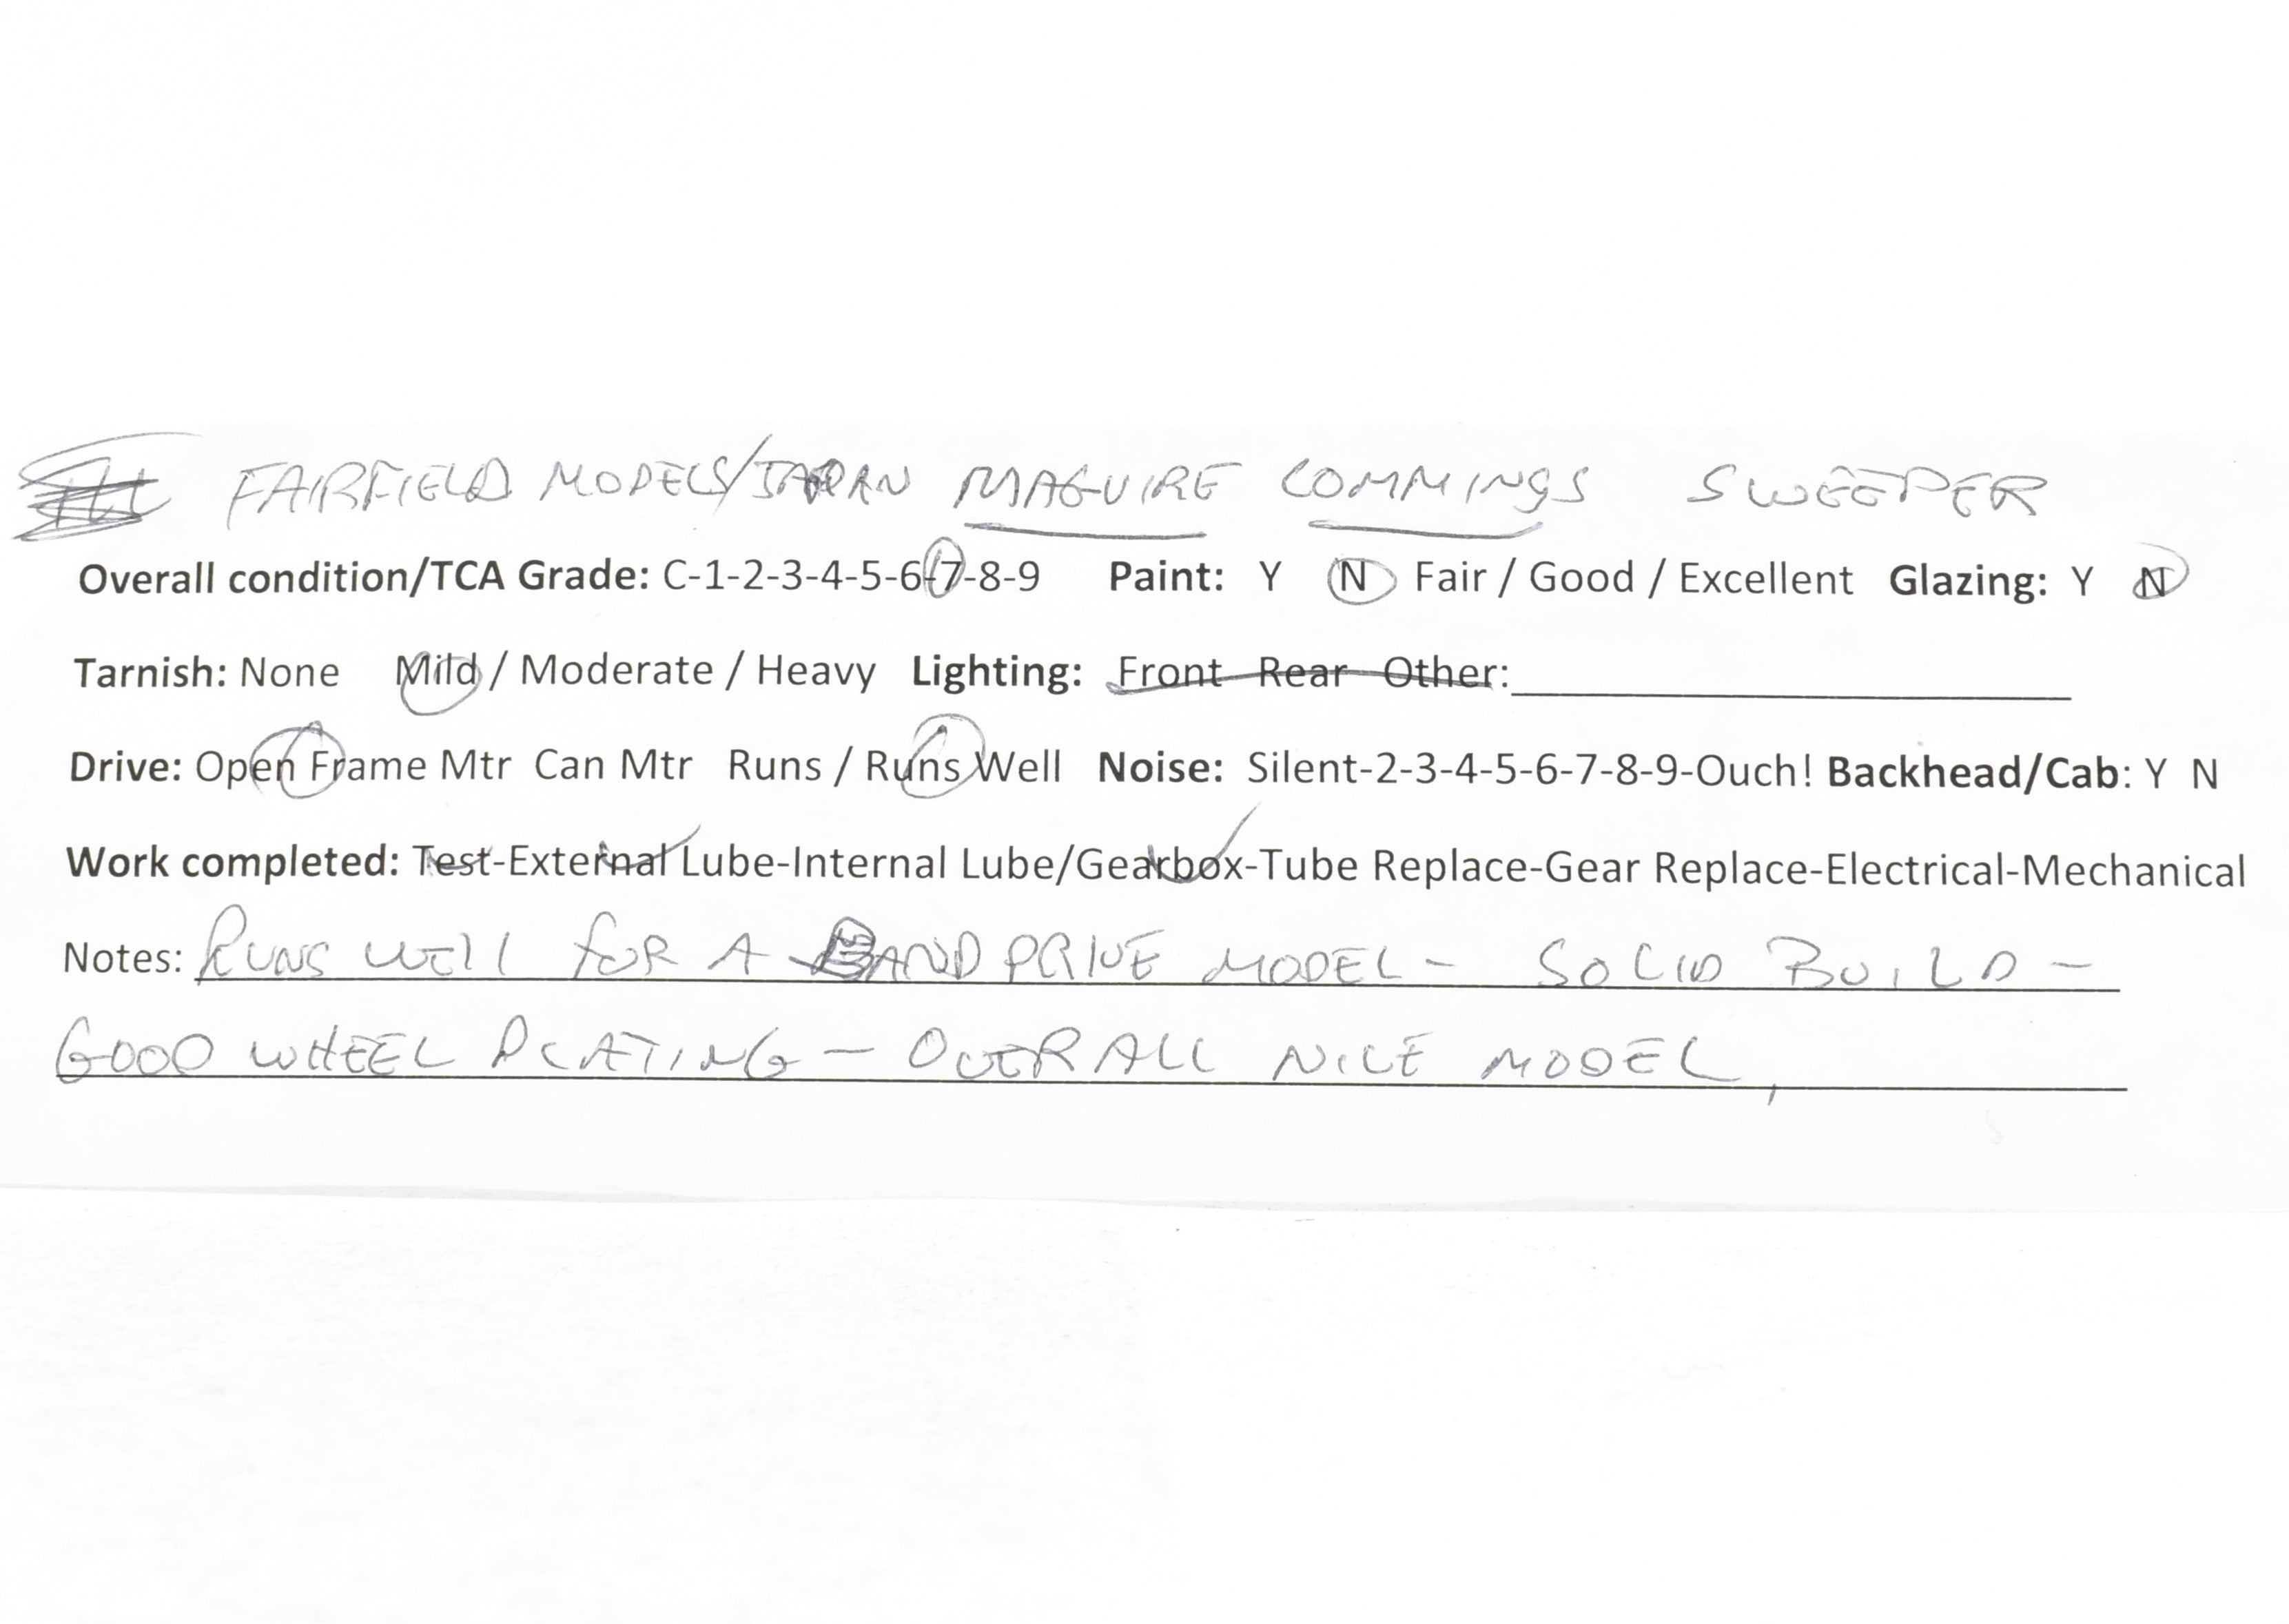 FAIRFIELD MODELS/JAPAN MAGUIRE COMMINGS SWEEPER
Overall condition/TCA Grade: C-1-2-3-4-5-6-7-8-9 Paint: Y N Fair / Good / Excellent Glazing: Y N
Tarnish: None Mild / Moderate / Heavy Lighting: Front Rear Other:
Drive: Open Frame Mtr Can Mtr Runs / Runs Well Noise: Silent-2-3-4-5-6-7-8-9-Ouch! Backhead/Cab: Y N
Work completed: Test-External Lube-Internal Lube/Gearbox-Tube Replace-Gear Replace-Electrical-Mechanical
Notes: RUNS WELL FOR A BAND DRIVE MODEL - SOLID BUILD -
GOOD WHEEL PLATING - OVERALL NICE MODEL